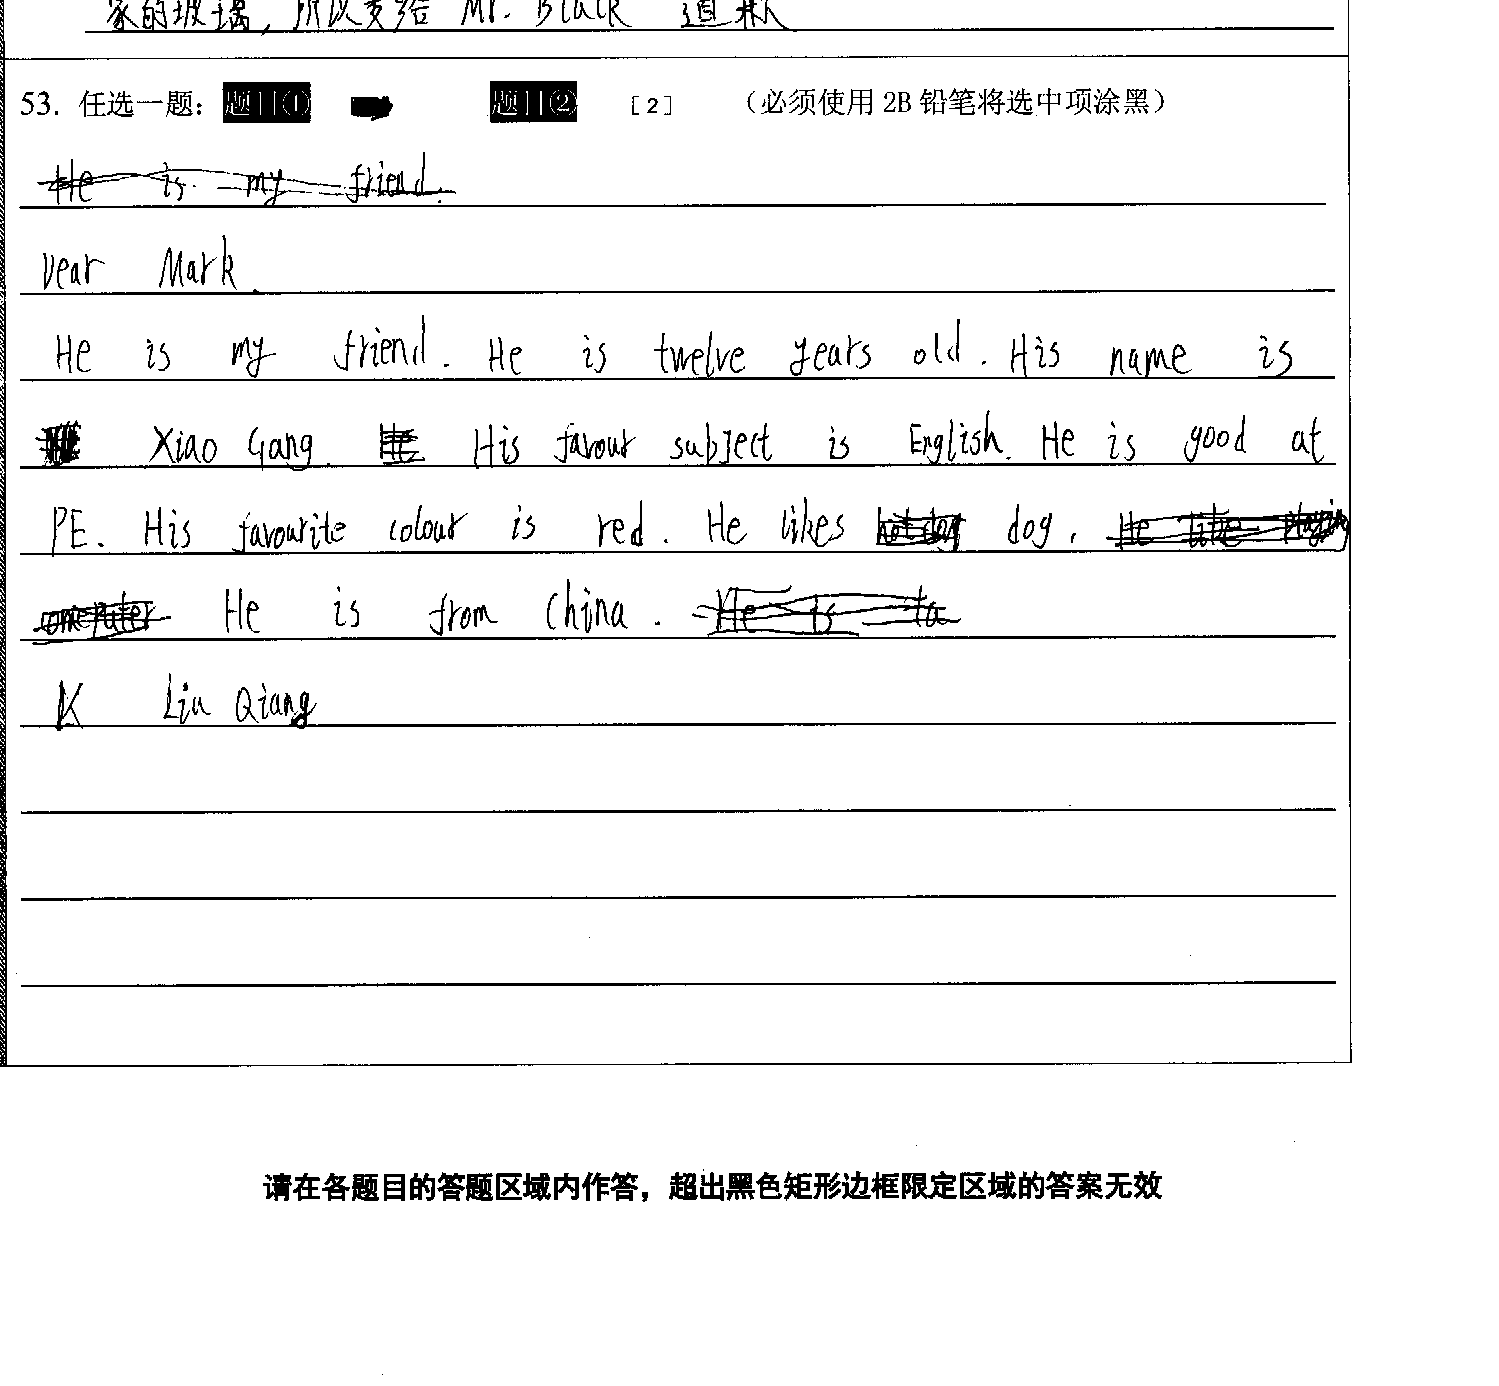 家的玻璃，所以要给 Mr. Black 道歉
53. 任选一题：题目① 题目② [2] （必须使用 2B 铅笔将选中项涂黑）
He is my friend.
Dear Mark.
He is my friend. He is twelve years old. His name is
Xiao Gang. He His favour subject is English. He is good at
PE. His favourite colour is red. He likes hot dog dog. He like playing
computer He is from China. He is ta
Liu Qiang
请在各题目的答题区域内作答，超出黑色矩形边框限定区域的答案无效